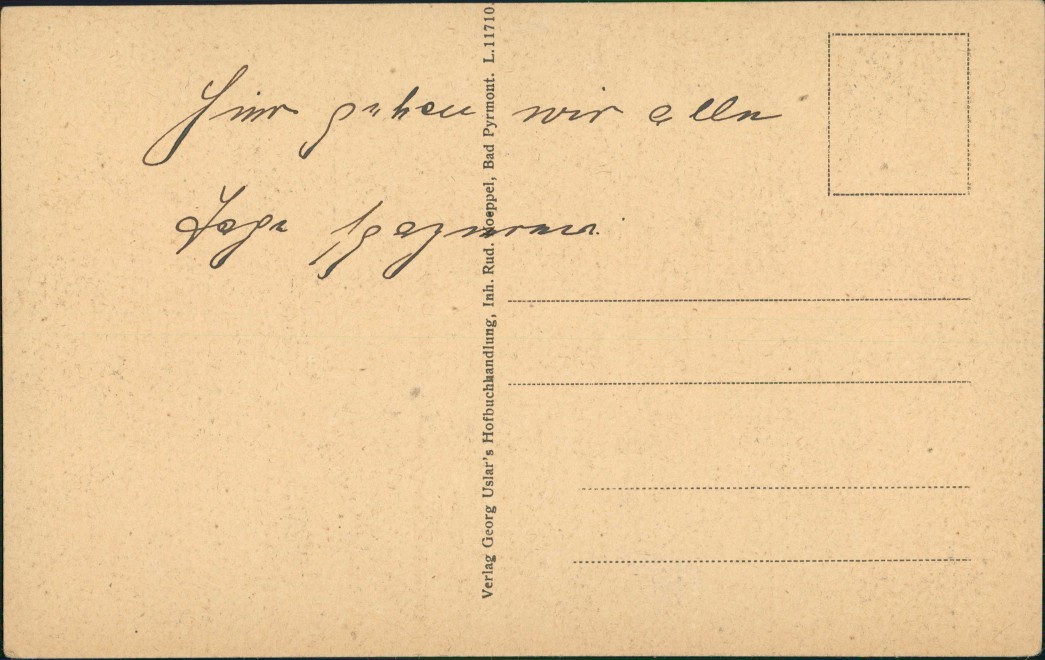 Hier gehen wir alle
Tage spazieren.
Verlag Georg Uslar's Hofbuchhandlung, Inh. Rud. Hoeppel, Bad Pyrmont. L.11710.